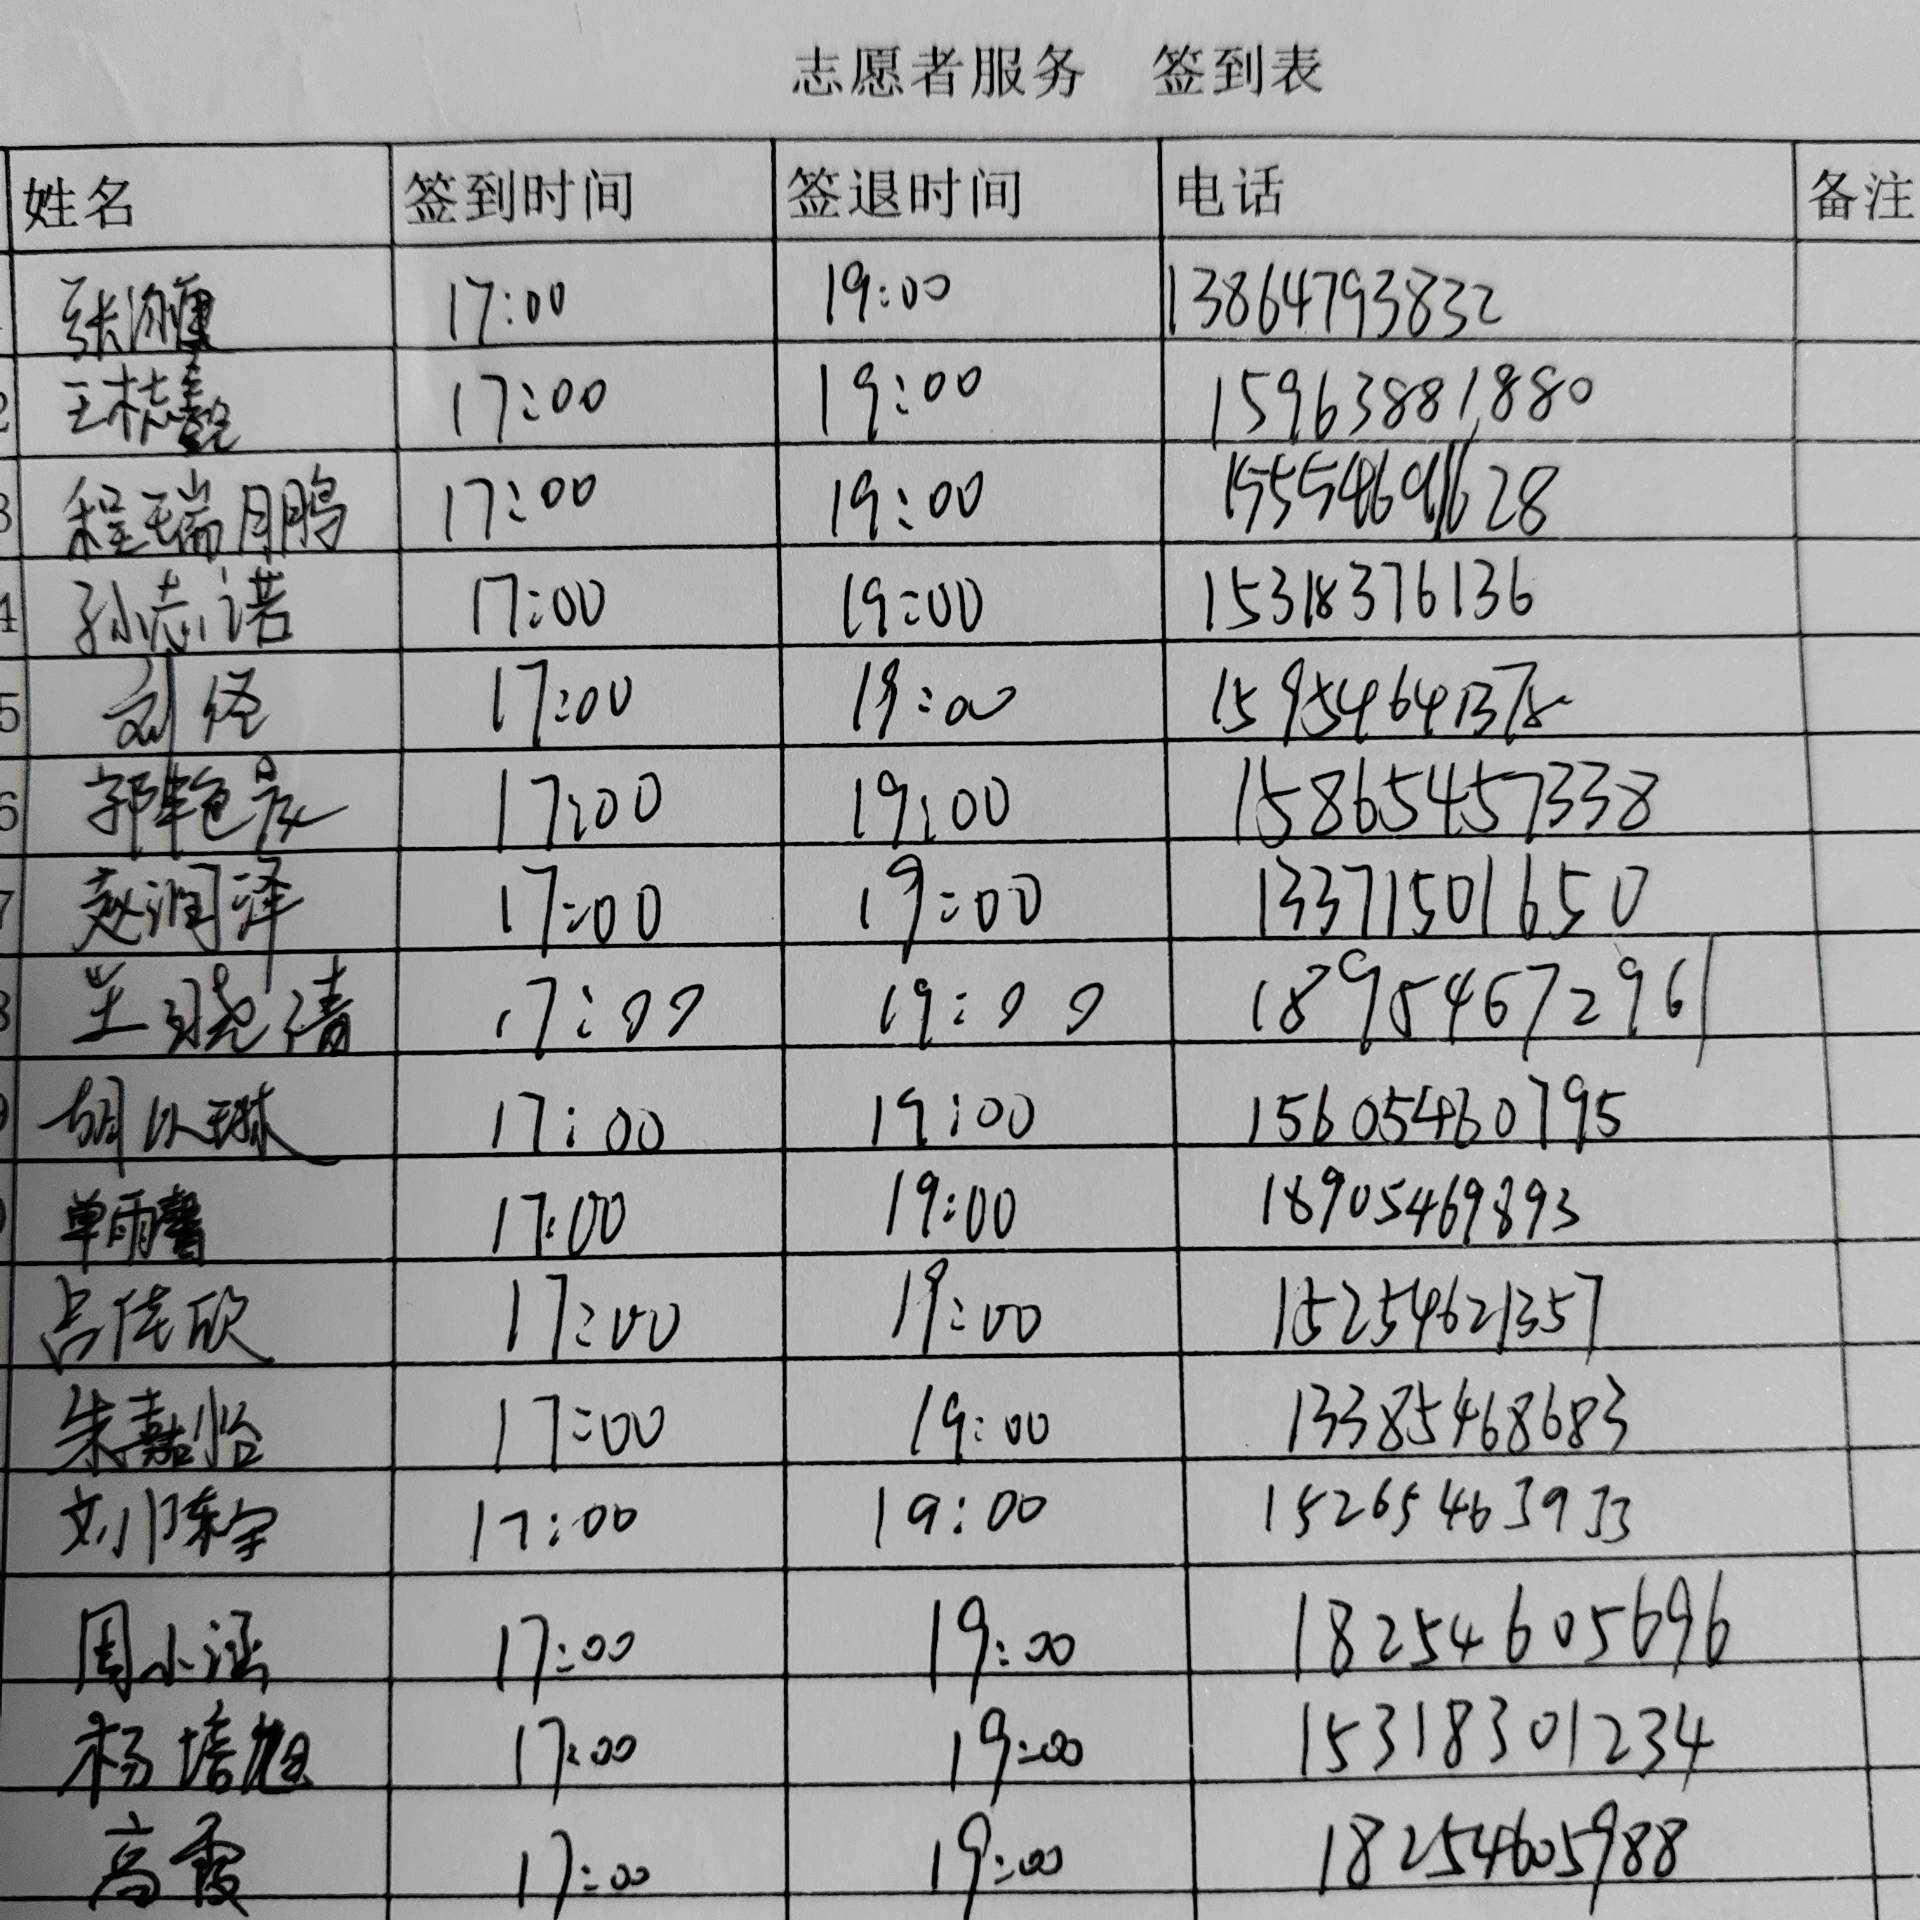 志愿者服务 签到表
姓名 签到时间 签退时间 电话 备注
17:00 19:00 13864793832
2 17:00 19:00 15963881880
3 程瑞鹏 17:00 19:00 15554691628
4 孙志诺 17:00 19:00 15318376136
5 刘 17:00 19:00
6 郭艳 17:00 19:00 15865457338
7 赵润泽 17:00 19:00 13371501650
8 晓清 17:00 19:00 18954672961
胡以琳 17:00 19:00 15605460795
单雨馨 17:00 19:00 18905469893
吕佳欣 17:00 19:00 15254621357
朱嘉怡 17:00 19:00 13385468683
刘陈宇 17:00 19:00 15265463933
周小涵 17:00 19:00 18254605696
杨培旭 17:00 19:00 15318301234
高霞 17:00 19:00 18254605988